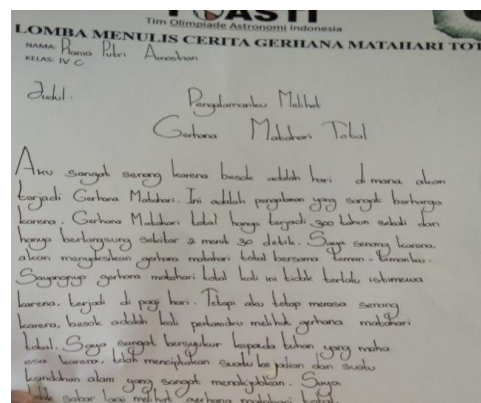 TOASTI
Tim Olimpiade Astronomi Indonesia
LOMBA MENULIS CERITA GERHANA MATAHARI TOT
NAMA: Rama Putri
KELAS: IV C
Judul.
Pengalamanku Melihat
Gerhana Matahari Total
Aku sangat senang karena besok adalah hari di mana akan
terjadi Gerhana Matahari. Ini adalah pengalaman yang sangat berharga
karena. Gerhana Matahari total hanya terjadi 300 tahun sekali dan
hanya berlangsung sekitar 2 menit 30 detik. Saya senang karena
akan menyaksikan gerhana matahari total bersama teman-temanku.
Sayangnya gerhana matahari total kali ini tidak terlalu istimewa
karena. terjadi di pagi hari. Tetapi aku tetap merasa senang
karena, besok adalah kali pertamaku melihat gerhana matahari
total. Saya sangat bersyukur kepada tuhan yang maha
esa karena, telah menciptakan suatu kejadian dan suatu
keindahan alam yang sangat menakjubkan. Saya
tidak sabar lagi melihat gerhana matahari total.